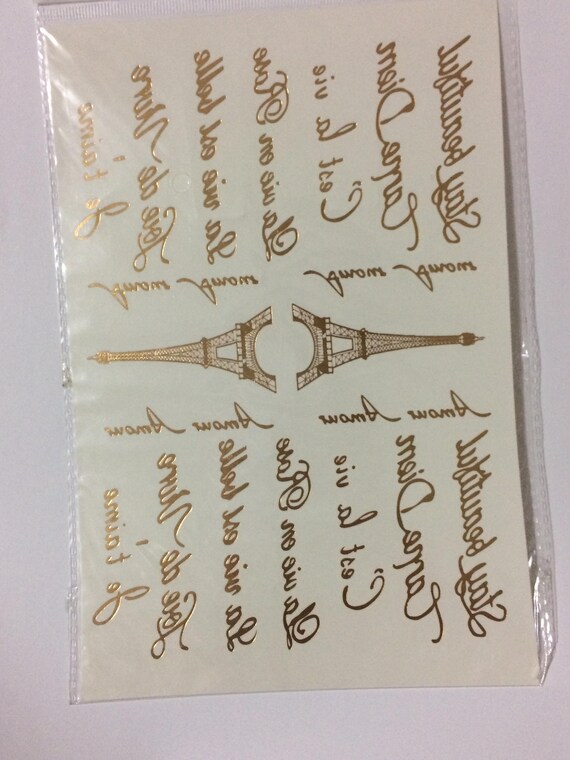 Je t'aime
Joie de Vivre
La vie est belle
La vie en Rose
C'est la vie
Carpe Diem
Stay beautiful
Amour Amour Amour Amour
Amour Amour Amour Amour
Je t'aime
Joie de Vivre
La vie est belle
La vie en Rose
C'est la vie
Carpe Diem
Stay beautiful